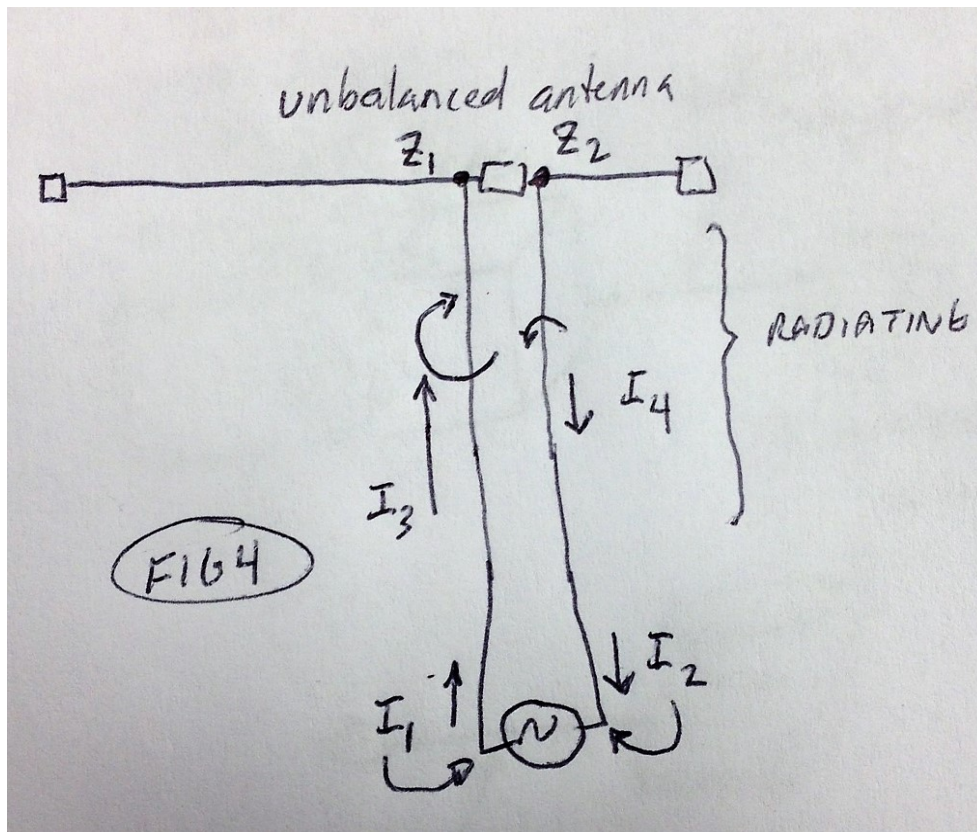 unbalanced antenna
Z1 Z2
RADIATING
I4
I3
FIG4
I2
I1